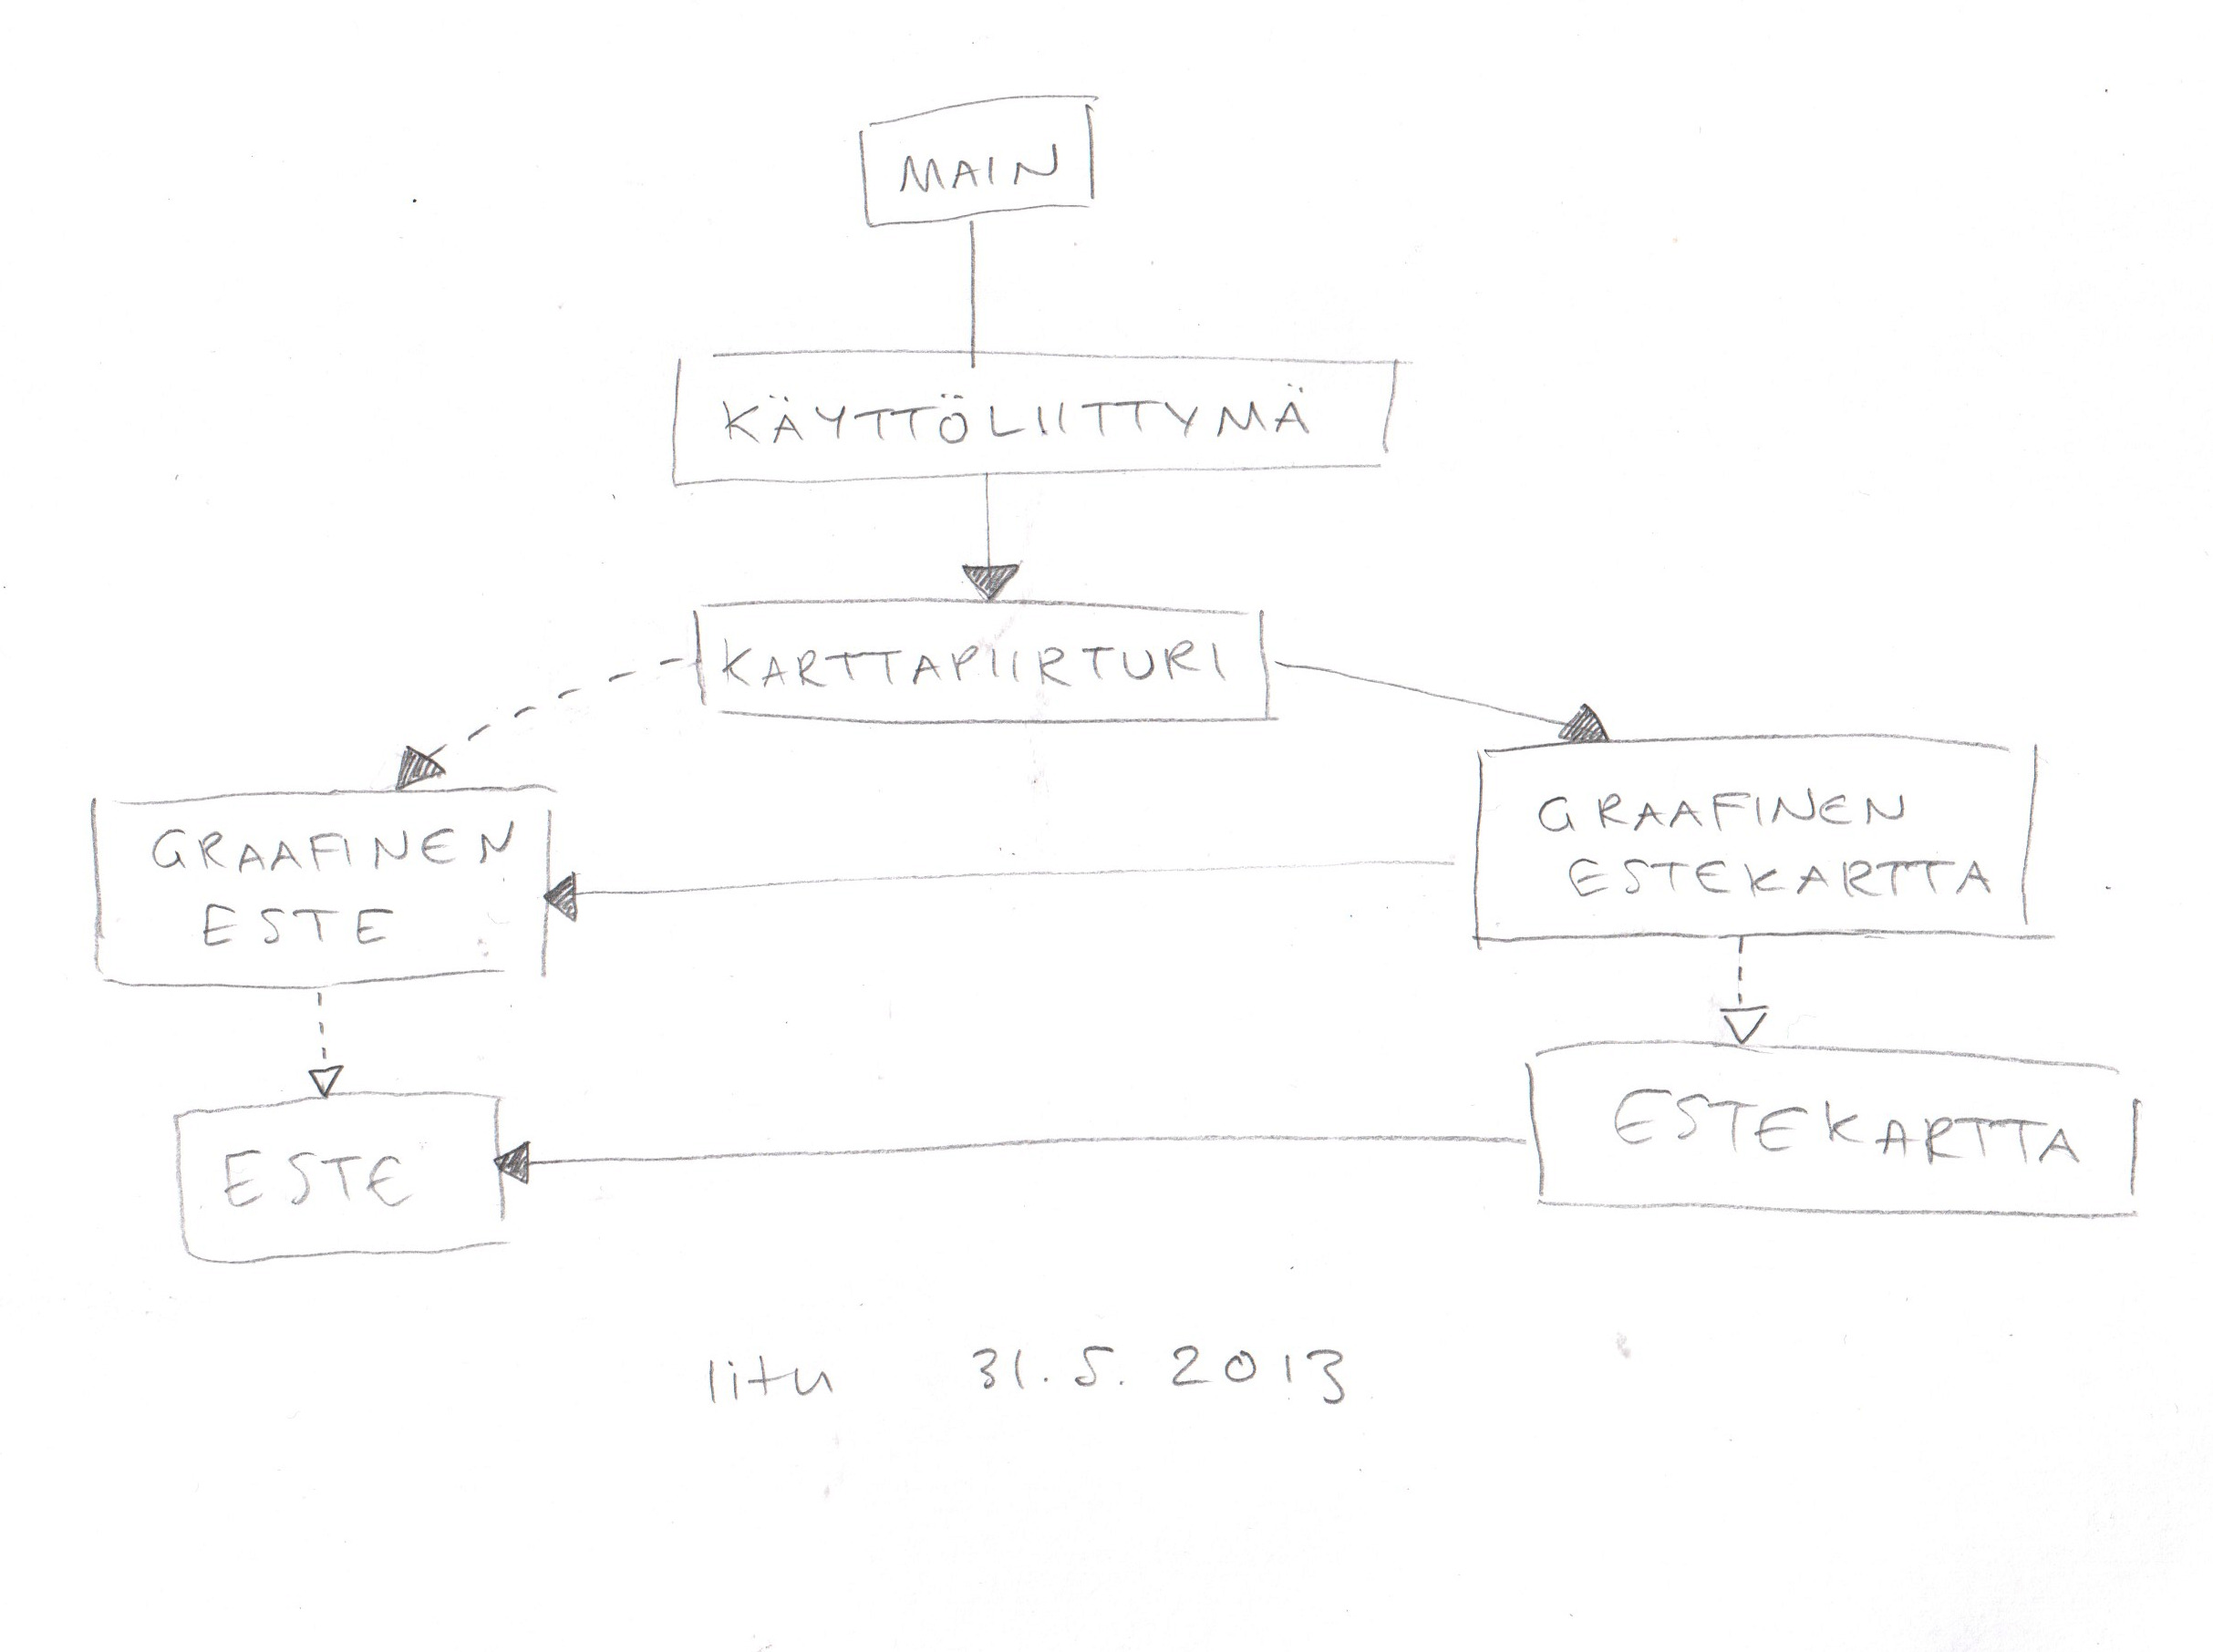 MAIN
KÄYTTÖLIITTYMÄ
KARTTAPIIRTURI
GRAAFINEN
ESTE
GRAAFINEN
ESTEKARTTA
ESTE
ESTEKARTTA
litu 31.5.2013